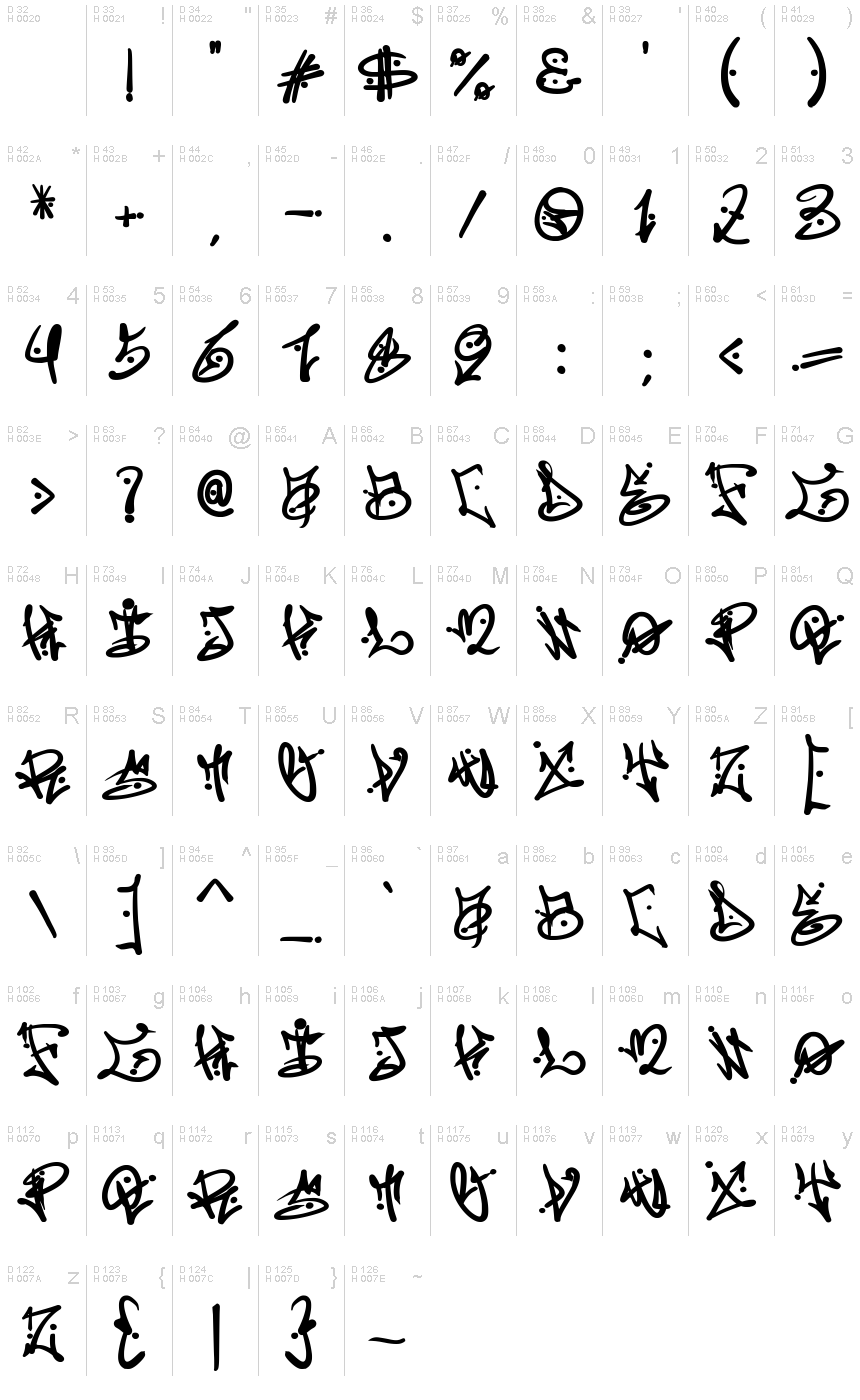 D 32 H 0020 D 33 H 0021 ! D 34 H 0022 " D 35 H 0023 # D 36 H 0024 $ D 37 H 0025 % D 38 H 0026 & D 39 H 0027 ' D 40 H 0028 ( D 41 H 0029 )
! " # $ % & ' ( )
D 42 H 002A * D 43 H 002B + D 44 H 002C , D 45 H 002D - D 46 H 002E . D 47 H 002F / D 48 H 0030 0 D 49 H 0031 1 D 50 H 0032 2 D 51 H 0033 3
* + , - . / 0 1 2 3
D 52 H 0034 4 D 53 H 0035 5 D 54 H 0036 6 D 55 H 0037 7 D 56 H 0038 8 D 57 H 0039 9 D 58 H 003A : D 59 H 003B ; D 60 H 003C < D 61 H 003D =
4 5 6 7 8 9 : ; < =
D 62 H 003E > D 63 H 003F ? D 64 H 0040 @ D 65 H 0041 A D 66 H 0042 B D 67 H 0043 C D 68 H 0044 D D 69 H 0045 E D 70 H 0046 F D 71 H 0047 G
> ? @ A B C D E F G
D 72 H 0048 H D 73 H 0049 I D 74 H 004A J D 75 H 004B K D 76 H 004C L D 77 H 004D M D 78 H 004E N D 79 H 004F O D 80 H 0050 P D 81 H 0051 Q
H I J K L M N O P Q
D 82 H 0052 R D 83 H 0053 S D 84 H 0054 T D 85 H 0055 U D 86 H 0056 V D 87 H 0057 W D 88 H 0058 X D 89 H 0059 Y D 90 H 005A Z D 91 H 005B [
R S T U V W X Y Z [
D 92 H 005C \ D 93 H 005D ] D 94 H 005E ^ D 95 H 005F _ D 96 H 0060 ` D 97 H 0061 a D 98 H 0062 b D 99 H 0063 c D 100 H 0064 d D 101 H 0065 e
\ ] ^ _ ` A B C D E
D 102 H 0066 f D 103 H 0067 g D 104 H 0068 h D 105 H 0069 i D 106 H 006A j D 107 H 006B k D 108 H 006C l D 109 H 006D m D 110 H 006E n D 111 H 006F o
F G H I J K L M N O
D 112 H 0070 p D 113 H 0071 q D 114 H 0072 r D 115 H 0073 s D 116 H 0074 t D 117 H 0075 u D 118 H 0076 v D 119 H 0077 w D 120 H 0078 x D 121 H 0079 y
P Q R S T U V W X Y
D 122 H 007A z D 123 H 007B { D 124 H 007C | D 125 H 007D } D 126 H 007E ~
Z { | } ~